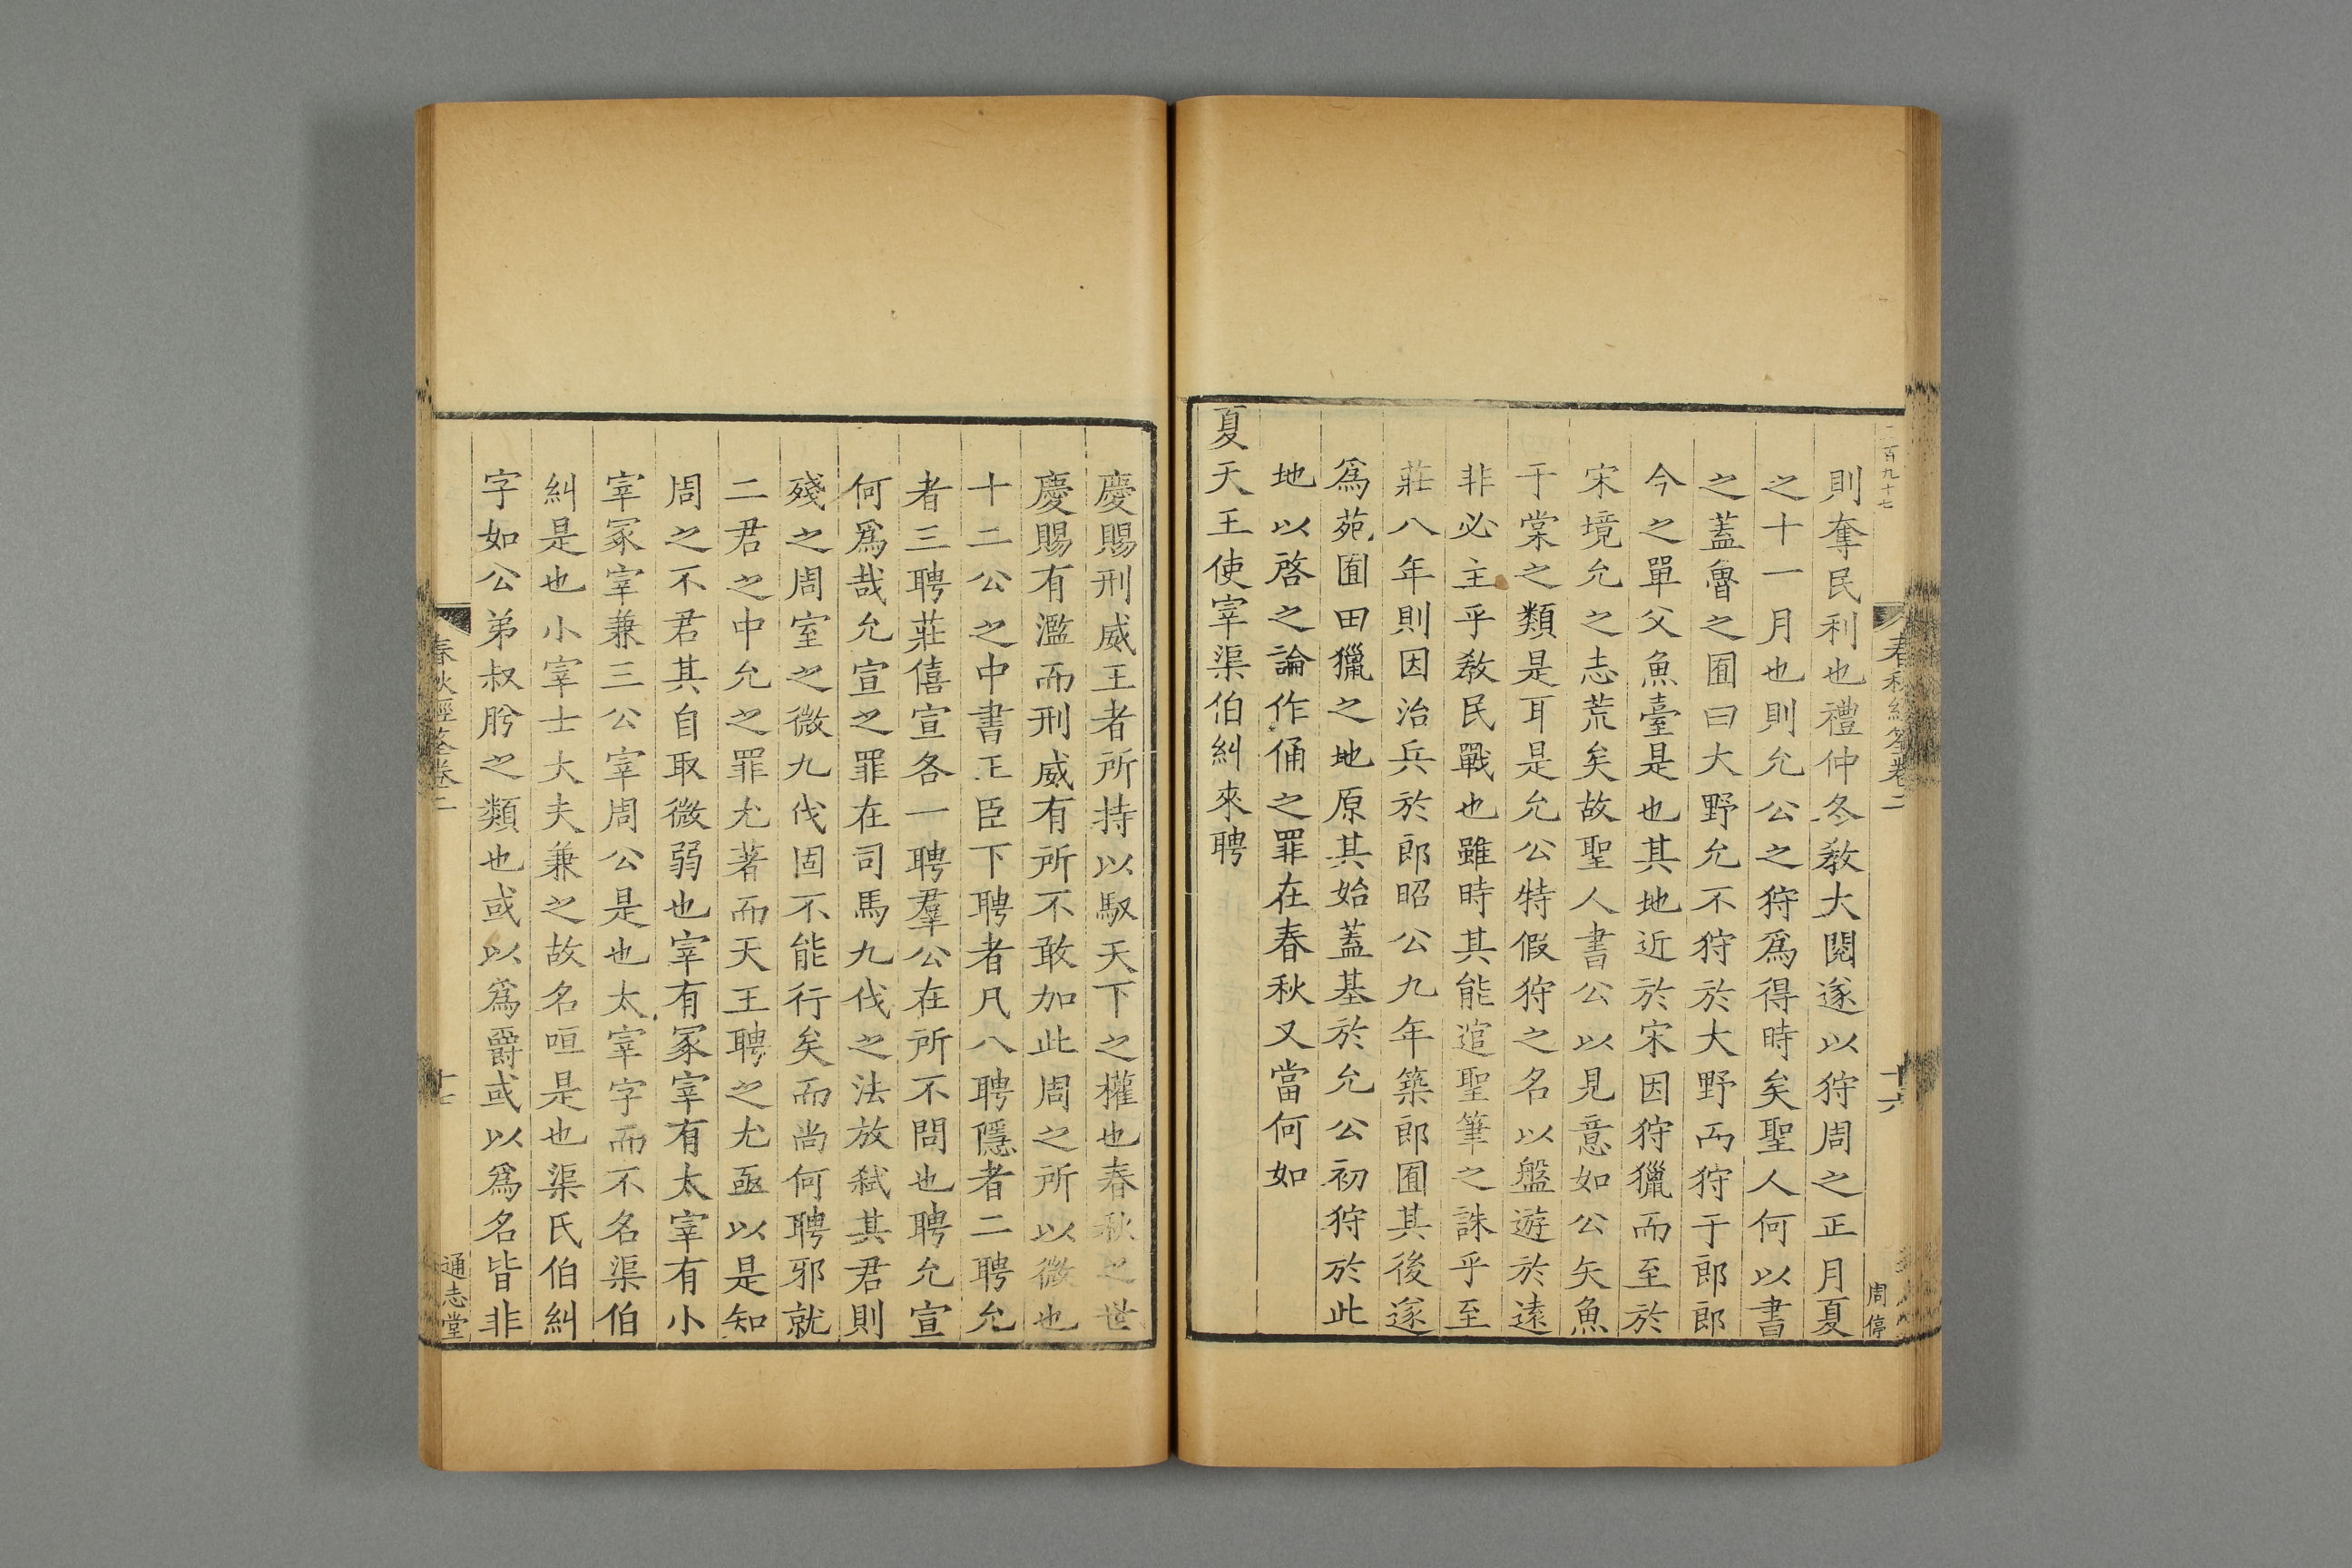 二百九十七
春秋經筌卷二
十六
周停
則奪民利也禮仲冬教大閱遂以狩周之正月夏
之十一月也則允公之狩爲得時矣聖人何以書
之蓋魯之囿曰大野允不狩於大野而狩于郎郎
今之單父魚臺是也其地近於宋因狩獵而至於
宋境允之志荒矣故聖人書公以見意如公矢魚
于棠之類是耳是允公特假狩之名以盤遊於遠
非必主乎敎民戰也雖時其能逭聖筆之誅乎至
莊八年則因治兵於郎昭公九年築郎囿其後遂
爲苑囿田獵之地原其始蓋基於允公初狩於此
地以啓之論作俑之罪在春秋又當何如
夏天王使宰渠伯糾來聘
慶賜刑威王者所持以馭天下之權也春秋之世
慶賜有濫而刑威有所不敢加此周之所以微也
十二公之中書王臣下聘者凡八聘隱者二聘允
者三聘莊僖宣各一聘羣公在所不問也聘允宣
何爲哉允宣之罪在司馬九伐之法放弒其君則
殘之周室之微九伐固不能行矣而尚何聘邪就
二君之中允之罪尤著而天王聘之尤亟以是知
周之不君其自取微弱也宰有冢宰有太宰有小
宰冢宰兼三公宰周公是也太宰字而不名渠伯
糾是也小宰士大夫兼之故名咺是也渠氏伯糾
字如公弟叔肸之類也或以爲爵或以爲名皆非
春秋經筌卷二
十七
通志堂